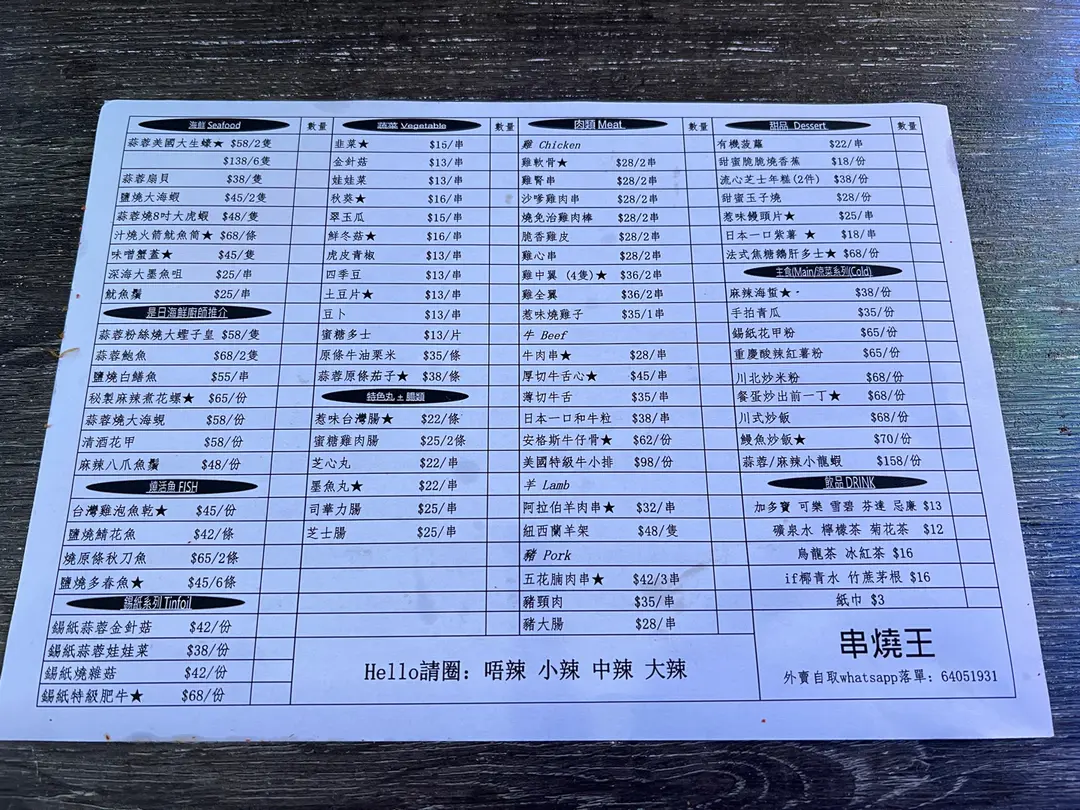 海鮮 Seafood 數量
蒜蓉美國大生蠔★ $58/2隻
$138/6隻
蒜蓉扇貝 $38/隻
鹽燒大海蝦 $45/2隻
蒜蓉燒8吋大虎蝦 $48/隻
汁燒火箭魷魚筒★ $68/條
味噌蟹蓋★ $45/隻
深海大墨魚咀 $25/串
魷魚鬚 $25/串
是日海鮮廚師推介
蒜蓉粉絲燒大蟶子皇 $58/隻
蒜蓉鮑魚 $68/2隻
鹽燒白鱔魚 $55/串
秘製麻辣煮花螺★ $65/份
蒜蓉燒大海蜆 $58/份
清酒花甲 $58/份
麻辣八爪魚鬚 $48/份
燒活魚 FISH
台灣雞泡魚乾★ $45/份
鹽燒鯖花魚 $42/條
燒原條秋刀魚 $65/2條
鹽燒多春魚★ $45/6條
錫紙系列 Tinfoil
錫紙蒜蓉金針菇 $42/份
錫紙蒜蓉娃娃菜 $38/份
錫紙燒雜菇 $42/份
錫紙特級肥牛★ $68/份
蔬菜 Vegetable 數量
韭菜★ $15/串
金針菇 $13/串
娃娃菜 $13/串
秋葵★ $16/串
翠玉瓜 $15/串
鮮冬菇★ $16/串
虎皮青椒 $13/串
四季豆 $13/串
土豆片★ $13/串
豆卜 $13/串
蜜糖多士 $13/片
原條牛油粟米 $35/條
蒜蓉原條茄子★ $38/條
特色丸 + 腸類
惹味台灣腸★ $22/條
蜜糖雞肉腸 $25/2條
芝心丸 $22/串
墨魚丸★ $22/串
司華力腸 $25/串
芝士腸 $25/串
肉類 Meat 數量
雞 Chicken
雞軟骨★ $28/2串
雞腎串 $28/2串
沙嗲雞肉串 $28/2串
燒免治雞肉棒 $28/2串
脆香雞皮 $28/2串
雞心串 $28/2串
雞中翼 (4隻)★ $36/2串
雞全翼 $36/2串
惹味燒雞子 $35/1串
牛 Beef
牛肉串★ $28/串
厚切牛舌心★ $45/串
薄切牛舌 $35/串
日本一口和牛粒 $38/串
安格斯牛仔骨★ $62/份
美國特級牛小排 $98/份
羊 Lamb
阿拉伯羊肉串★ $32/串
紐西蘭羊架 $48/隻
豬 Pork
五花腩肉串★ $42/3串
豬頸肉 $35/串
豬大腸 $28/串
甜品 Dessert 數量
有機菠蘿 $22/串
甜蜜脆脆燒香蕉 $18/份
流心芝士年糕(2件) $38/份
甜蜜玉子燒 $28/份
惹味饅頭片★ $25/串
日本一口紫薯 ★ $18/串
法式焦糖鵝肝多士★ $68/份
主食(Main/涼菜系列(Cold)
麻辣海蜇★ $38/份
手拍青瓜 $35/份
錫紙花甲粉 $65/份
重慶酸辣紅薯粉 $65/份
川北炒米粉 $68/份
餐蛋炒出前一丁★ $68/份
川式炒飯 $68/份
鰻魚炒飯★ $70/份
蒜蓉/麻辣小龍蝦 $158/份
飲品 DRINK
加多寶 可樂 雪碧 芬達 忌廉 $13
礦泉水 檸檬茶 菊花茶 $12
烏龍茶 冰紅茶 $16
if椰青水 竹蔗茅根 $16
紙巾 $3
Hello請圈: 唔辣 小辣 中辣 大辣
串燒王
外賣自取whatsapp落單: 64051931